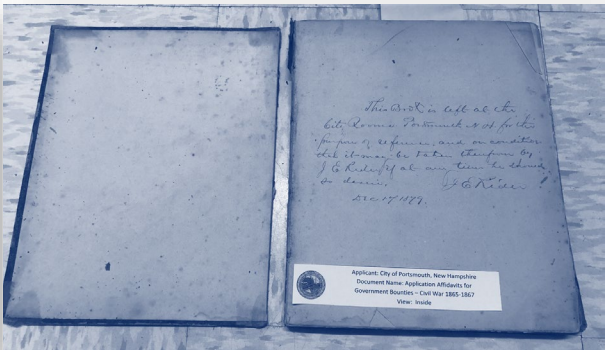 This Book is left at the
City Rooms Portsmouth N H for the
purpose of reference, and on condition
that it may be taken therefrom by
J E Rider if at any time he should
so desire.
J E Rider
Dec 17 1879.
Applicant: City of Portsmouth, New Hampshire
Document Name: Application Affidavits for
Government Bounties – Civil War 1865-1867
View: Inside